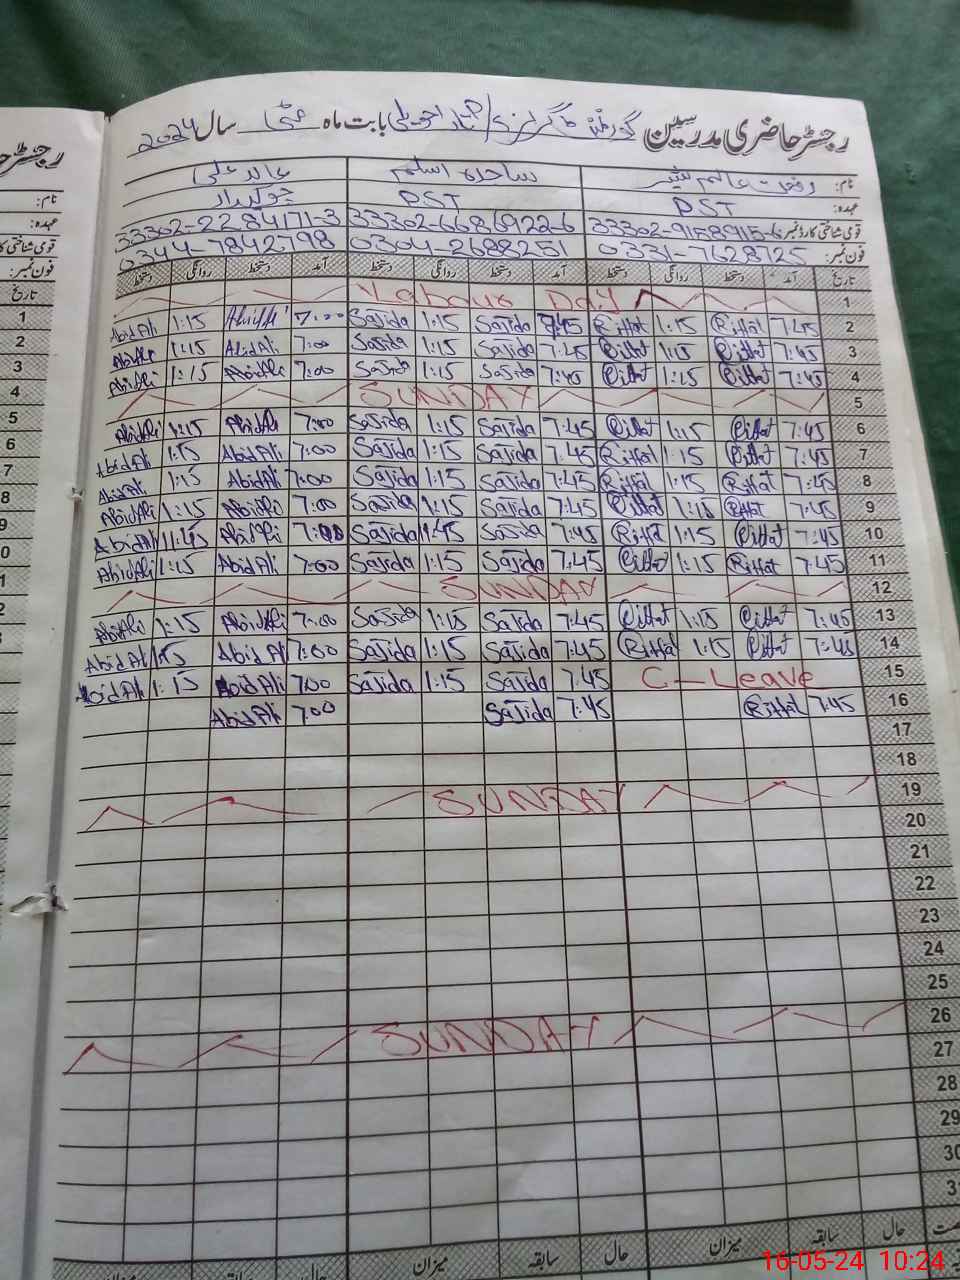 رجسٹر حاضری مدرسین گورنمنٹ گرلز بابت ماہ مئی سال 2024
نام: ساجدہ اسلم عابد علی
عہدہ: PST PST چوکیدار
قومی شناختی کارڈ نمبر: 33302-9158915-6 33302-6686922-6 33302-2284171-3
فون نمبر: 0331-7628725 0304-2688251 0344-7842798
تاریخ آمد دستخط روانگی دستخط آمد دستخط روانگی دستخط آمد دستخط روانگی دستخط
Labour Day 1
Abid Ali 1:15 Abid Ali 7:00 Sajida 1:15 Sajida 7:45 Riffat 1:15 Riffat 7:45 2
Abid Ali 1:15 Abid Ali 7:00 Sajida 1:15 Sajida 7:45 Riffat 1:15 Riffat 7:45 3
Abid Ali 1:15 Abid Ali 7:00 Sajida 1:15 Sajida 7:45 Riffat 1:15 Riffat 7:45 4
SUNDAY 5
Abid Ali 1:15 Abid Ali 7:00 Sajida 1:15 Sajida 7:45 Riffat 1:15 Riffat 7:45 6
Abid Ali 1:15 Abid Ali 7:00 Sajida 1:15 Sajida 7:45 Riffat 1:15 Riffat 7:45 7
Abid Ali 1:15 Abid Ali 7:00 Sajida 1:15 Sajida 7:45 Riffat 1:15 Riffat 7:45 8
Abid Ali 1:15 Abid Ali 7:00 Sajida 1:15 Sajida 7:45 Riffat 1:15 Riffat 7:45 9
Abid Ali 11:45 Abid Ali 7:00 Sajida Sajida 7:45 Riffat 1:15 Riffat 7:45 10
Abid Ali 1:15 Abid Ali 7:00 Sajida 1:15 Sajida 7:45 Riffat 1:15 Riffat 7:45 11
SUNDAY 12
Abid Ali 1:15 Abid Ali 7:00 Sajida 1:15 Sajida 7:45 Riffat 1:15 Riffat 7:45 13
Abid Ali 1:15 Abid Ali 7:00 Sajida 1:15 Sajida 7:45 Riffat 1:15 Riffat 7:45 14
Abid Ali 1:15 Abid Ali 7:00 Sajida 1:15 Sajida 7:45 C-Leave 15
Abid Ali 7:00 Sajida 7:45 Riffat 7:45 16
17
18
SUNDAY 19
20
21
22
23
24
25
SUNDAY 26
27
28
29
30
حال سابقہ میزان حال سابقہ میزان حال سابقہ میزان
16-05-24 10:24